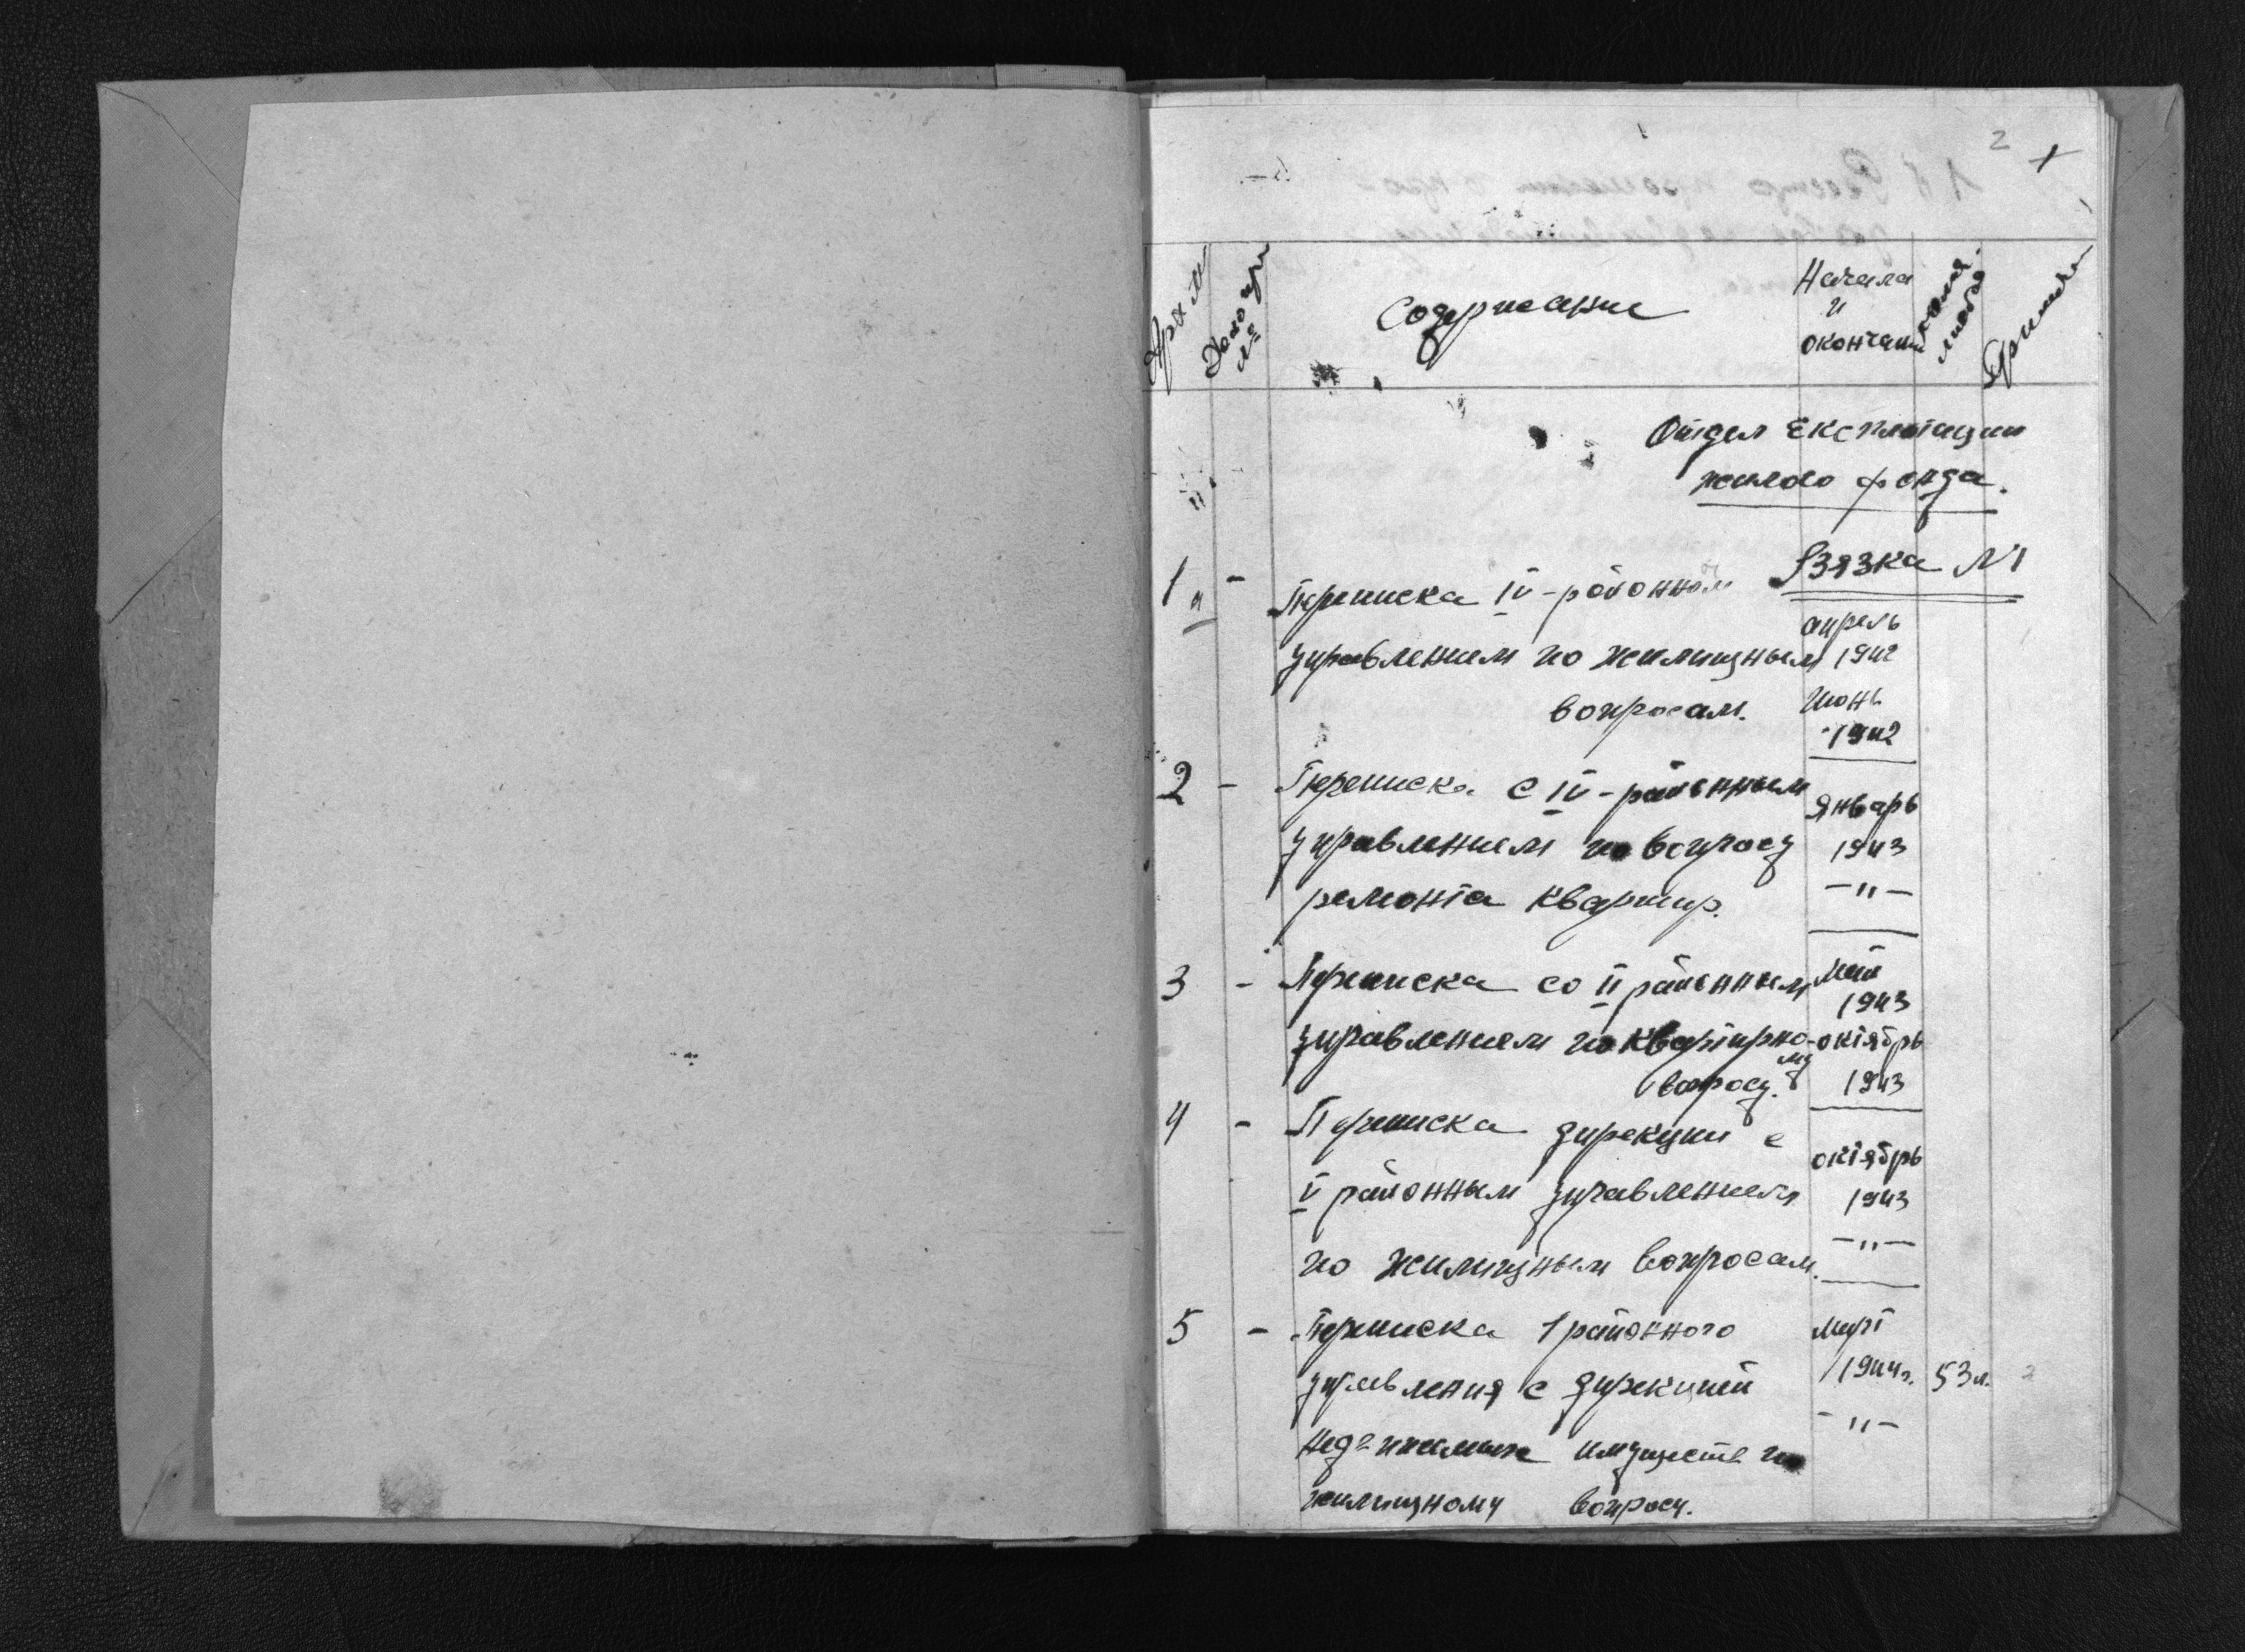 2 1
Арх №
Дело №
Содержание
Начала
и
окончан
Отдел Експлотации
жилого фонда.
Вязка №1
1 - Переписка IV-районным
апрель
управлением по жилищным 1942
вопросам. Июнь
1942
2 - Переписка с IV-районным
Январь
управлением по вопросу 1943
ремонта квартир. -"-
3 - Переписка со II районным Май
1943
управлением по квартирно- октябрь
му
вопросу. 1943
4 - Переписка дирекции с
октябрь
V районным управлением 1943
по жилищным вопросам. -"-
5 - Переписка 1 районного март
управления с дирекцией 1944г. 53 л.
недвижимых имуществ по -"-
жилищному вопросу.